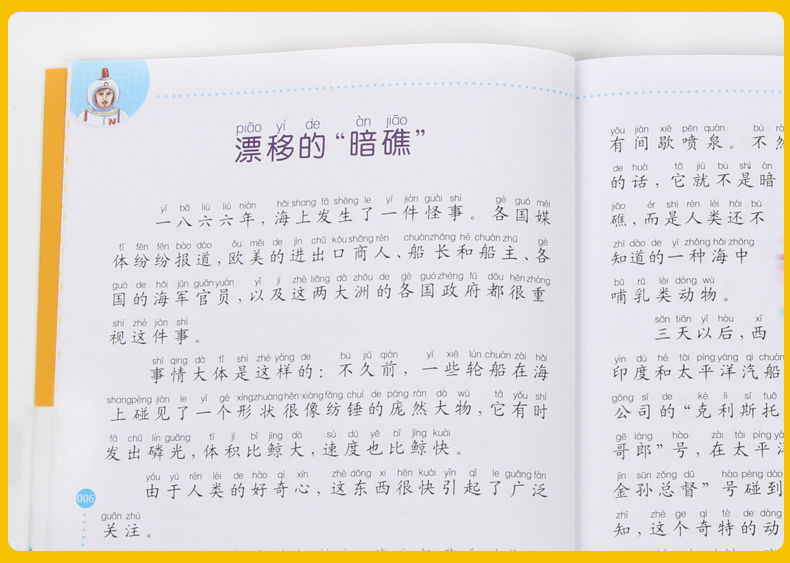 piāo yí de àn jiāo
漂移的“暗礁”
yī bā liù liù nián hǎi shang fā shēng le yí jiàn guài shì gè guó méi
一八六六年,海上发生了一件怪事。各国媒
tǐ fēn fēn bào dào ōu měi de jìn chū kǒu shāng rén chuán zhǎng hé chuán zhǔ gè
体纷纷报道,欧美的进出口商人、船长和船主、各
guó de hǎi jūn guān yuán yǐ jí zhè liǎng dà zhōu de gè guó zhèng fǔ dōu hěn zhòng
国的海军官员,以及这两大洲的各国政府都很重
shì zhè jiàn shì
视这件事。
shì qing dà tǐ shì zhè yàng de bù jiǔ qián yì xiē lún chuán zài hǎi
事情大体是这样的:不久前,一些轮船在海
shang pèng jiàn le yí gè xíng zhuàng hěn xiàng fǎng chuí de páng rán dà wù tā yǒu shí
上碰见了一个形状很像纺锤的庞然大物,它有时
fā chū lín guāng tǐ jī bǐ jīng dà sù dù yě bǐ jīng kuài
发出磷光,体积比鲸大,速度也比鲸快。
yóu yú rén lèi de hào qí xīn zhè dōng xi hěn kuài yǐn qǐ le guǎng fàn
由于人类的好奇心,这东西很快引起了广泛
guān zhù
关注。
006
yǒu jiàn xiē pēn quán bù rán
有间歇喷泉。不然
de huà tā jiù bú shì àn
的话,它就不是暗
jiāo ér shì rén lèi hái bù
礁,而是人类还不
zhī dào de yì zhǒng hǎi zhōng
知道的一种海中
bǔ rǔ lèi dòng wù
哺乳类动物。
sān tiān yǐ hòu xī
三天以后,西
yìn dù hé tài píng yáng qì chuán
印度和太平洋汽船
gōng sī de kè lì sī tuō
公司的“克利斯托
gē láng hào zài tài píng yáng
哥郎”号,在太平洋
jīn sūn zǒng dū hào pèng dào
金孙总督”号碰到
zhī zhè ge qí tè de dòng
知,这个奇特的动